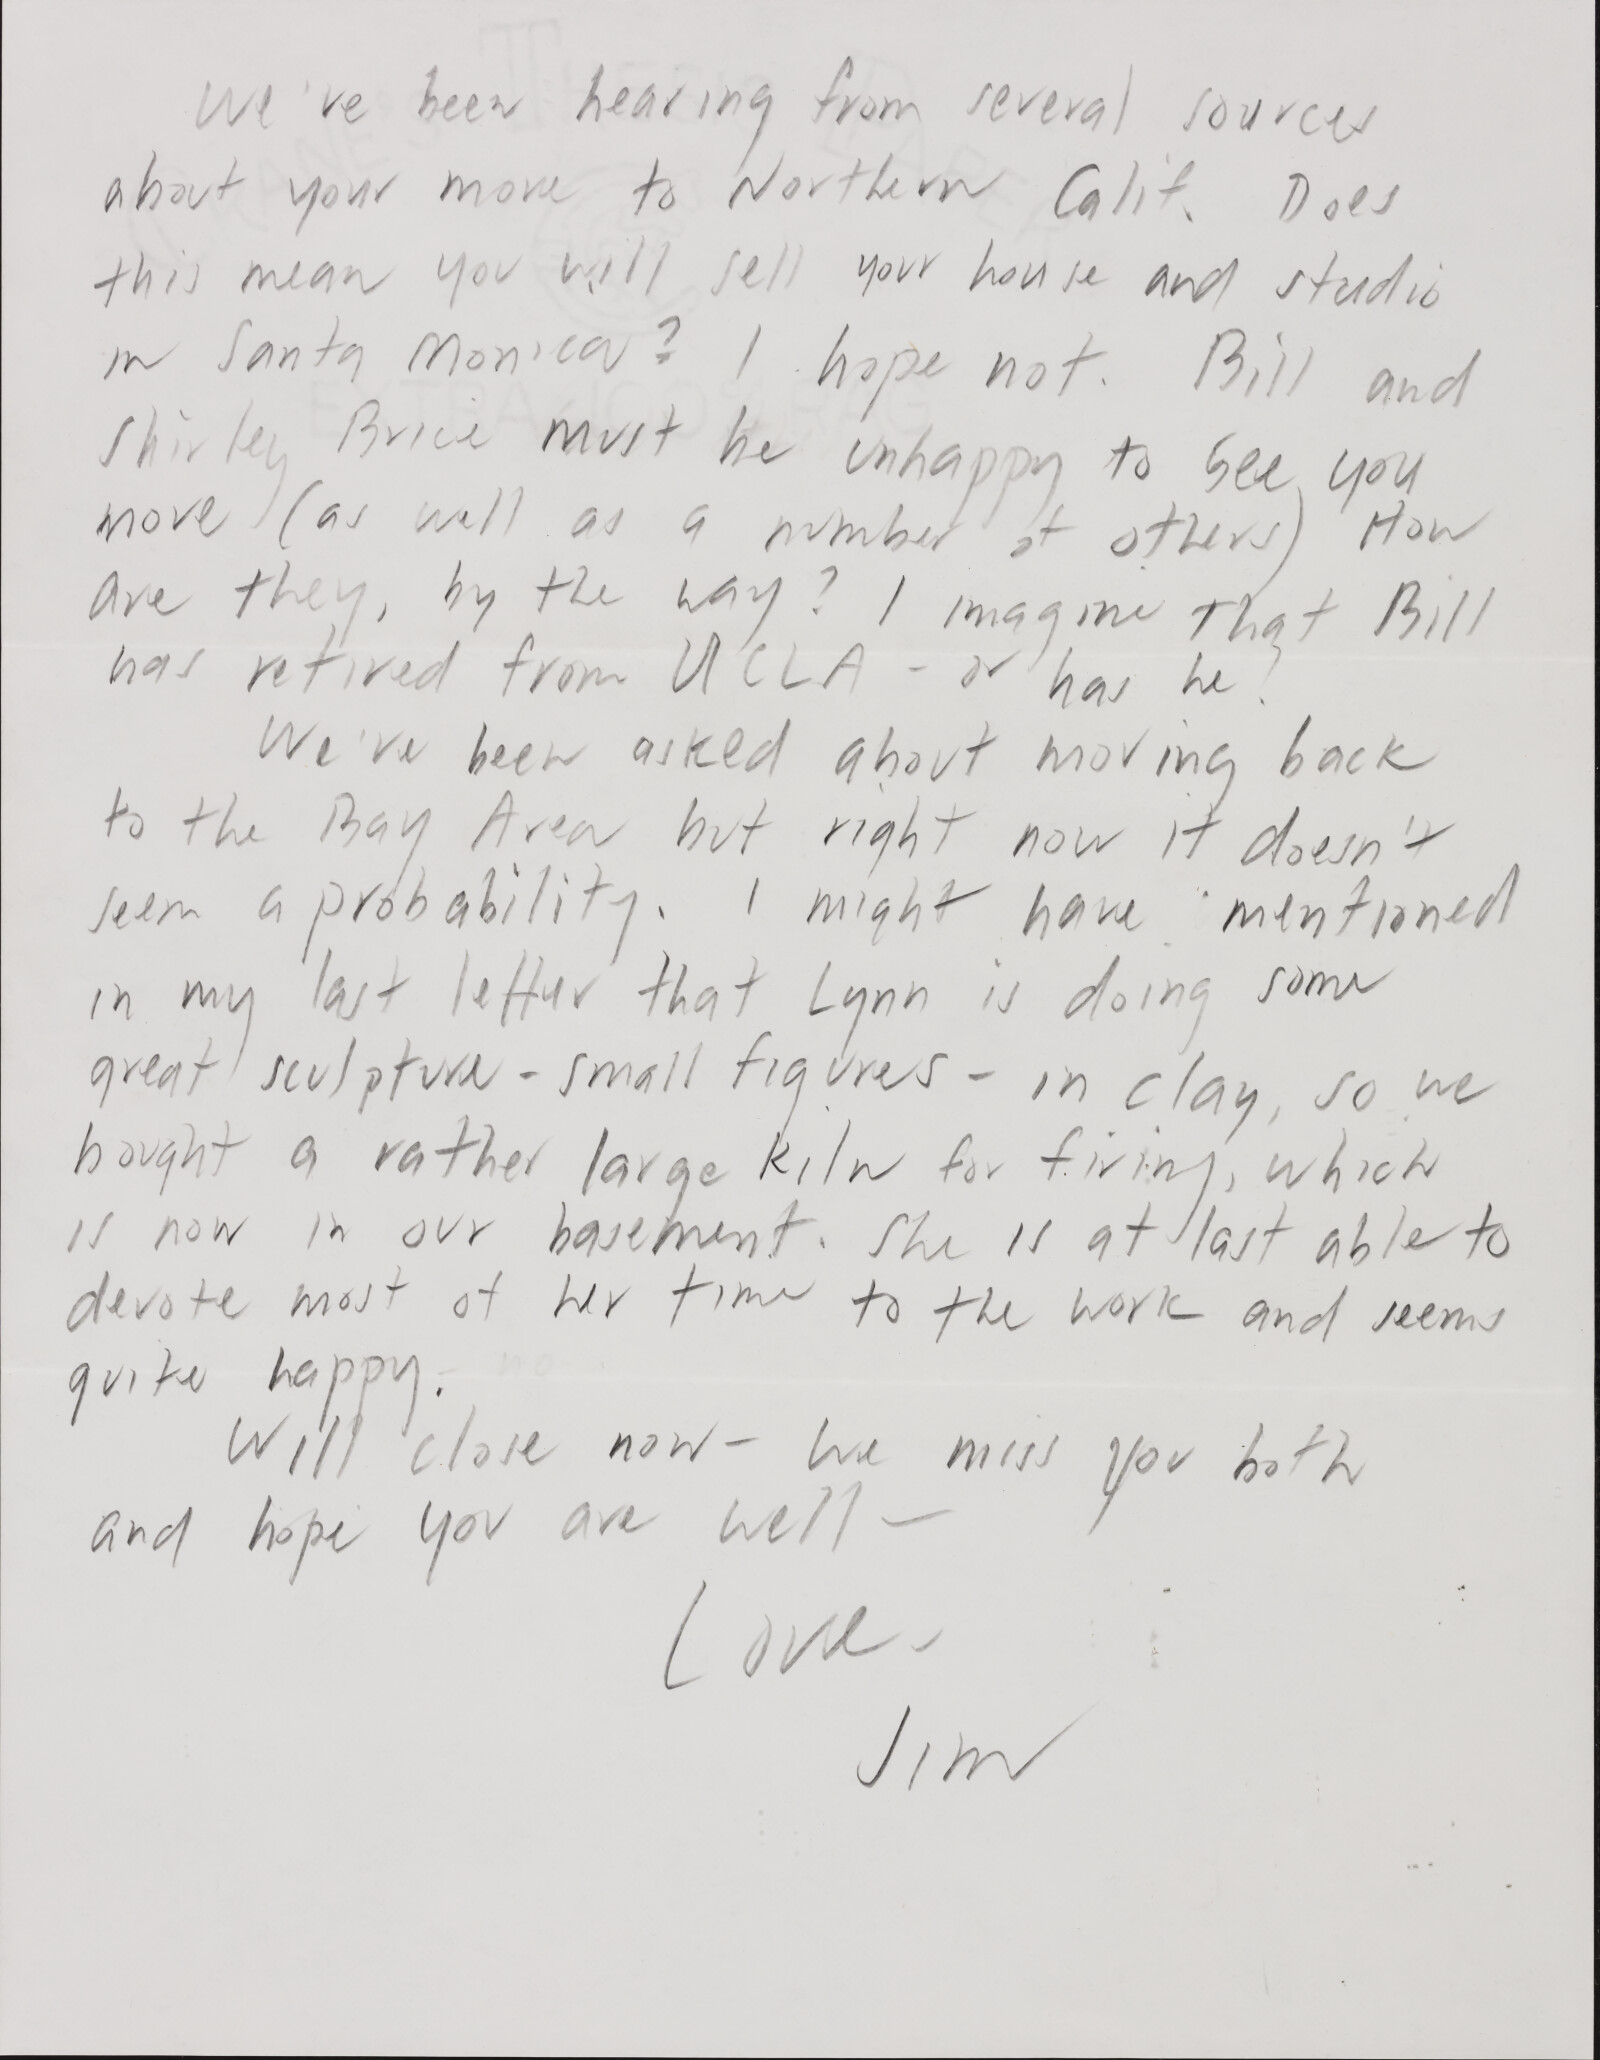 We've been hearing from several sources
about your move to Northern Calif. Does
this mean you will sell your house and studio
in Santa Monica? I hope not. Bill and
Shirley Brice must be unhappy to see you
move (as well as a number of others) How
are they, by the way? I imagine that Bill
has retired from UCLA - or has he?
We've been asked about moving back
to the Bay Area but right now it doesn't
seem a probability. I might have mentioned
in my last letter that Lynn is doing some
great sculpture - small figures - in clay, so we
bought a rather large kiln for firing, which
is now in our basement. She is at last able to
devote most of her time to the work and seems
quite happy.
Will close now - we miss you both
and hope you are well —
Love,
Jim